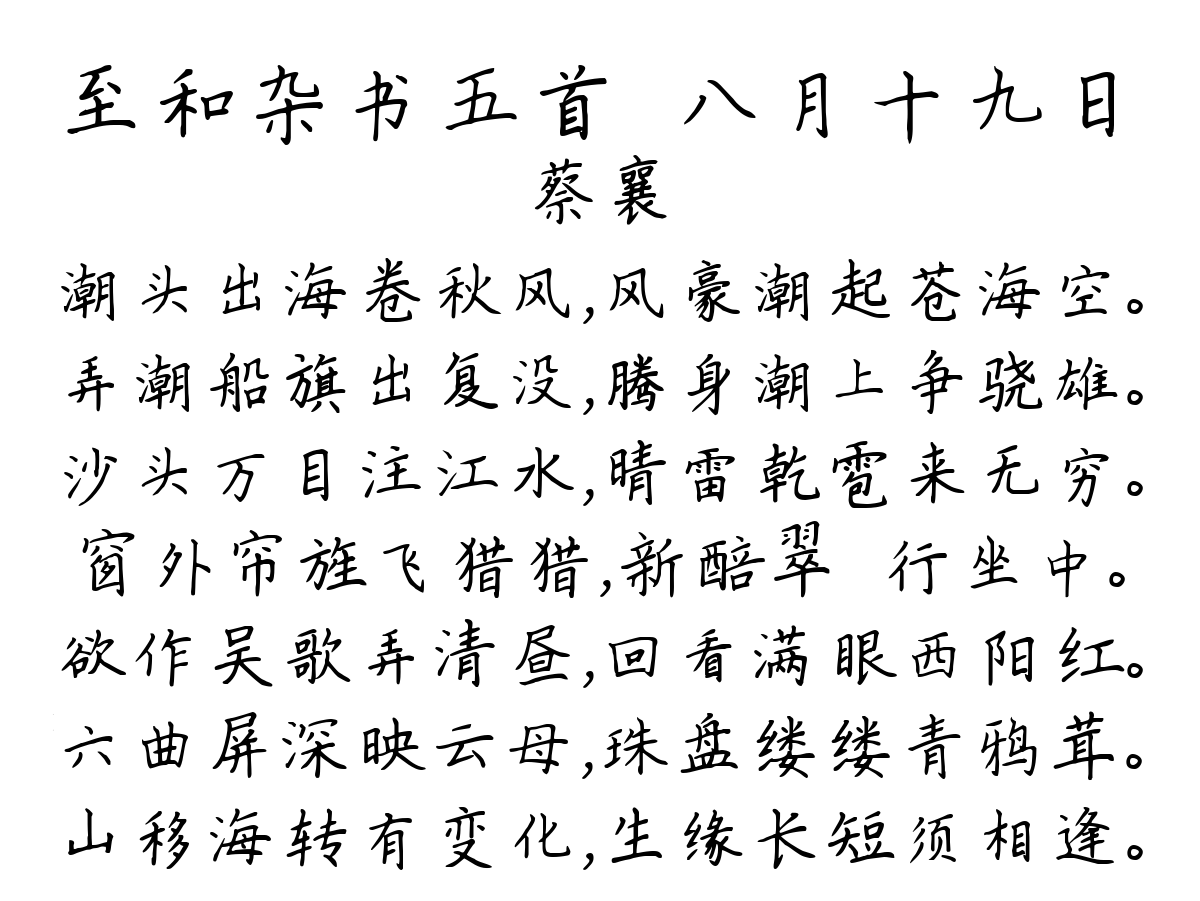 至和杂书五首 八月十九日
蔡襄
潮头出海卷秋风,风豪潮起苍海空。
弄潮船旗出复没,腾身潮上争骁雄。
沙头万目注江水,晴雷乾雹来无穷。
窗外帘旌飞猎猎,新醅翠 行坐中。
欲作吴歌弄清昼,回看满眼西阳红。
六曲屏深映云母,珠盘缕缕青鸦茸。
山移海转有变化,生缘长短须相逢。